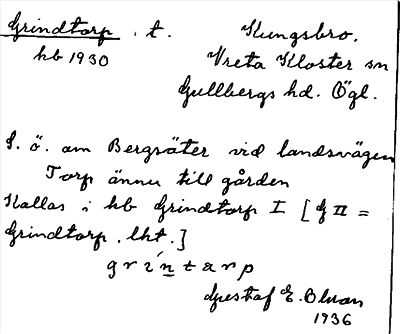 Grindtorp . t. Kungsbro.
hb 1930 Vreta Kloster sn
Gullbergs hd. Ögl.
S. ö. om Bergsäter vid landsvägen
Torp ännu till gården
Kallas i hb Grindtorp I [G II =
Grindtorp . lht.]
grińtarp
Gustaf E. Olson
1936